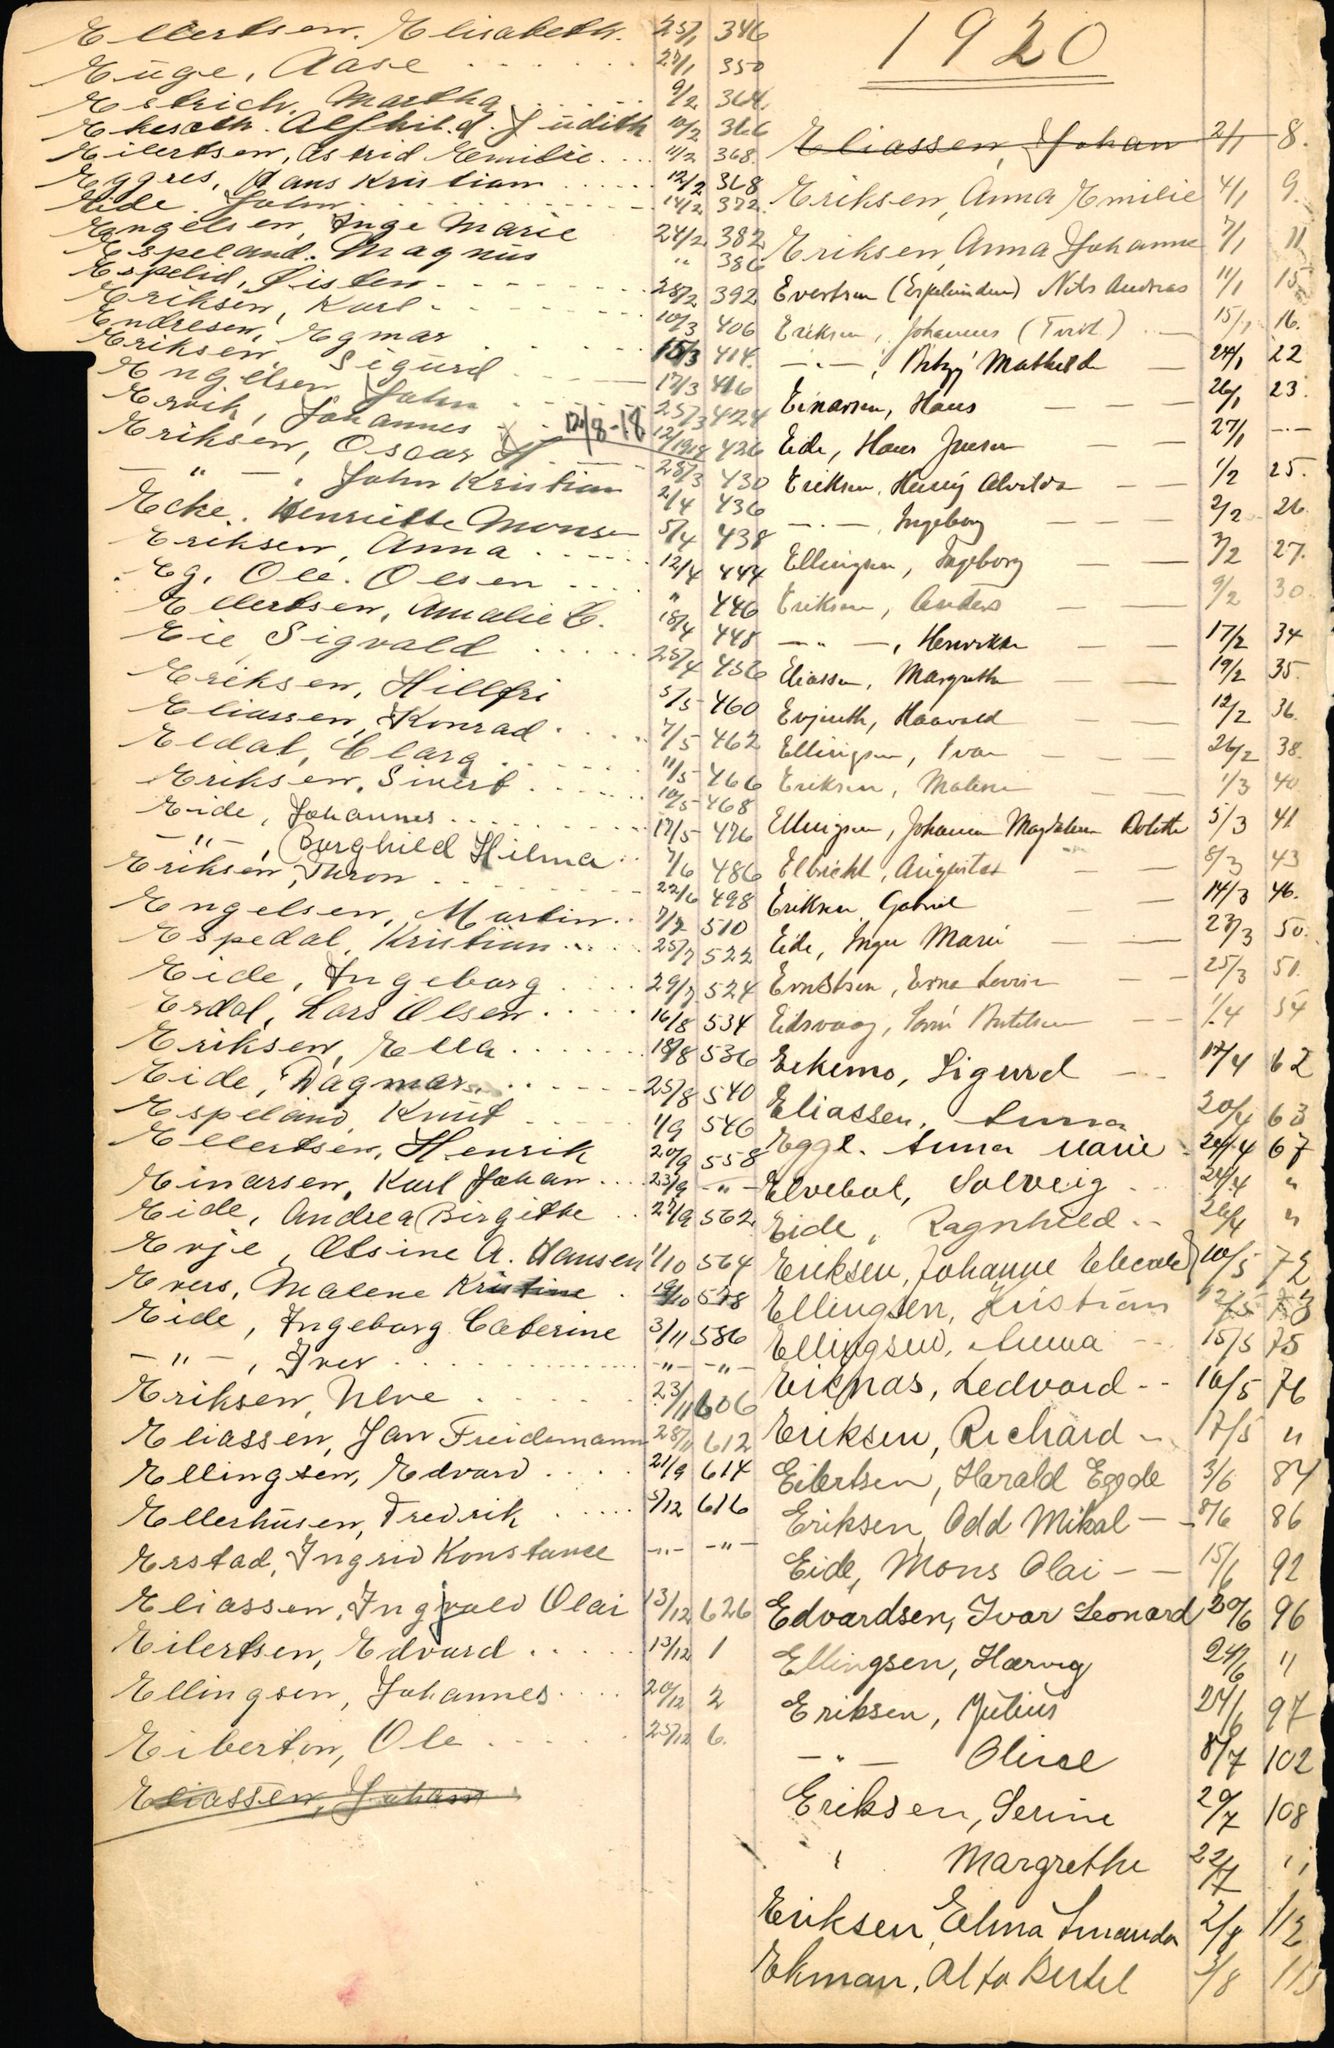 Ellertsen. Elisabeth. 25/1 346
Euge, Aase 27/1 350
Estrich, Martha 9/2 364
Ekeseth. Alfhild. Judith 10/2 366
Eilertsen, Astrid Emilie 11/2 368
Eggres, Hans Kristian 12/2 368
Eide, John 14/2 372
Engelsen, Inge Marie 24/2 382
Espeland. Magnus " 386
Espelid, Sisten 28/2 392
Eriksen, Karl 10/3 406
Endresen, Egmar 15/3 414
Eriksen, Sigurd 17/3 416
Engelsen, John 25/3 424
Ervik, Johannes 12/8-18 12/1918 426
Eriksen, Oscar H 28/3 430
— " — , John Kristian 2/4 436
Ecke. Henriette Monsen 5/4 438
Eriksen, Anna 12/4 444
Eg, Ole. Olsen " 446
Ellertsen, Amalie C. 18/4 448
Eie Sigvald 25/4 456
Eriksen, Hillfri 5/5 460
Eliassen, Konrad 7/5 462
Eldal, Clara 11/5 466
Eriksen, Sivert 10/5 468
Eide, Johannes 17/5 476
— " — , Borghild Hilma 7/6 486
Eriksen, Thron 22/6 498
Engelsen, Martin 7/7 510
Espedal, Kristian 25/7 522
Eide, Ingeborg 29/7 524
Erdal, Lars Olsen 16/8 534
Eriksen, Ella 18/8 536
Eide, Dagmar 25/8 540
Espeland, Knut 1/9 546
Ellertsen, Henrik 20/9 558
Einarsen, Karl Johan 23/9 — " —
Eide, Andrea Birgitte 27/9 562
Evje, Olsine A. Hansen 1/10 564
Evers, Malene Kristine 19/10 578
Eide, Ingeborg Caterine 3/11 586
— " — , Iver — " — — " —
Eriksen, Nlve 23/11 606
Eliassen, Jan Freidemann 28/11 612
Ellingsen, Edvard 21/9 614
Ellerhusen, Fredrik 5/12 616
Erstad, Ingrid Konstance — " — — " —
Eliassen, Ingvald Olai 13/12 626
Eilertsen, Edvard 13/12 1
Ellingsen, Johannes 20/12 2
Eiberton, Ole 25/12 6.
Eliassen, Johan
1920
Eliassen, Johan 2/1 8.
Eriksen, Anna Emilie 4/1 9.
Eriksen, Anna Johanne 7/1 11
Evertsen (Espelunden) Nils Andreas 11/1 15
Eriksen, Johannes (Tvist) 15/1 16.
— " — , Betzy Mathilde 24/1 22
Einarsen, Hans 26/1 23.
Eide, Hans Jensen 27/1 — " —
Eriksen, Henry Alvilda 1/2 25.
— " — , Ingeborg 2/2 26
Ellingsen, Ingeborg 3/2 27.
Eriksen, Anders 9/2 30
— " — , Henrikke 17/2 34
Eliassen, Margrethe 19/2 35
Evjenth, Haavald 12/2 36.
Ellingsen, Ivar 26/2 38
Eriksen, Malene 1/3 40
Ellingsen, Johanne Magdalene Dolette 5/3 41
Elbricht, Augusta 8/3 43
Eriksen, Gabriel 14/3 46.
Eide, Inger Marie 23/3 50.
Erntsen, Erne Lovise 25/3 51.
Eidsvaag, Severin Bertelsen 1/4 54
Eikemo, Sigurd 17/4 62
Eliassen, Anna 20/4 63
Egge. Anna Marie 24/4 67
Elvebal, Solveig 24/4 "
Eide, Ragnhild 26/4 "
Eriksen, Johanne Elecate 10/5 72
Ellingsen, Kristian 12/5 73
Ellingsen, Anna 15/5 75
Eiknas, Ledvard 16/5 76
Eriksen, Richard 17/5 "
Eilertsen, Harald Egede 3/6 84
Eriksen, Odd Mikal 8/6 86
Eide, Mons Olai 15/6 92
Edvardsen, Ivar Leonard 20/6 96
Ellingsen, Harvig 24/6 "
Eriksen, Julius 27/6 97
— " — Oline 8/7 102
Eriksen, Serine 20/7 108
" Margrethe 22/7 "
Eriksen, Elma Amanda 2/8 112
Ekman, Alfo Bertel 3/8 113